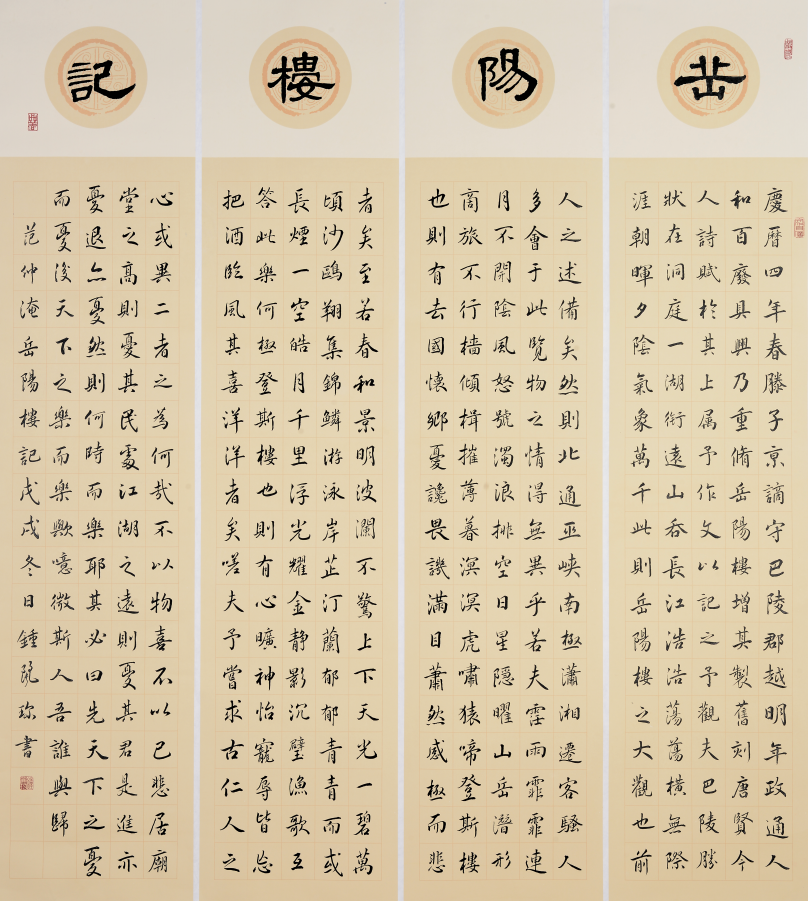 岳陽樓記
慶曆四年春滕子京謫守巴陵郡越明年政通人
和百廢具興乃重脩岳陽樓增其製舊刻唐賢今
人詩賦於其上属予作文以記之予觀夫巴陵勝
狀在洞庭一湖銜遠山吞長江浩浩蕩蕩橫無際
涯朝暉夕陰氣象萬千此則岳陽樓之大觀也前
人之述備矣然則北通巫峽南極瀟湘遷客騷人
多會于此覽物之情得無異乎若夫霪雨霏霏連
月不開陰風怒號濁浪排空日星隱曜山岳潛形
商旅不行檣傾楫摧薄暮溟溟虎嘯猿啼登斯樓
也則有去國懷鄉憂讒畏譏滿目蕭然感極而悲
者矣至若春和景明波瀾不驚上下天光一碧萬
頃沙鷗翔集錦鱗游泳岸芷汀蘭郁郁青青而或
長煙一空皓月千里浮光耀金静影沉璧漁歌互
答此樂何極登斯樓也則有心曠神怡寵辱皆忘
把酒臨風其喜洋洋者矣嗟夫予嘗求古仁人之
心或異二者之為何哉不以物喜不以己悲居廟
堂之高則憂其民處江湖之遠則憂其君是進亦
憂退亦憂然則何時而樂耶其必曰先天下之憂
而憂後天下之樂而樂歟噫微斯人吾誰與歸
范仲淹岳陽樓記戊戌冬日鍾毓珎書